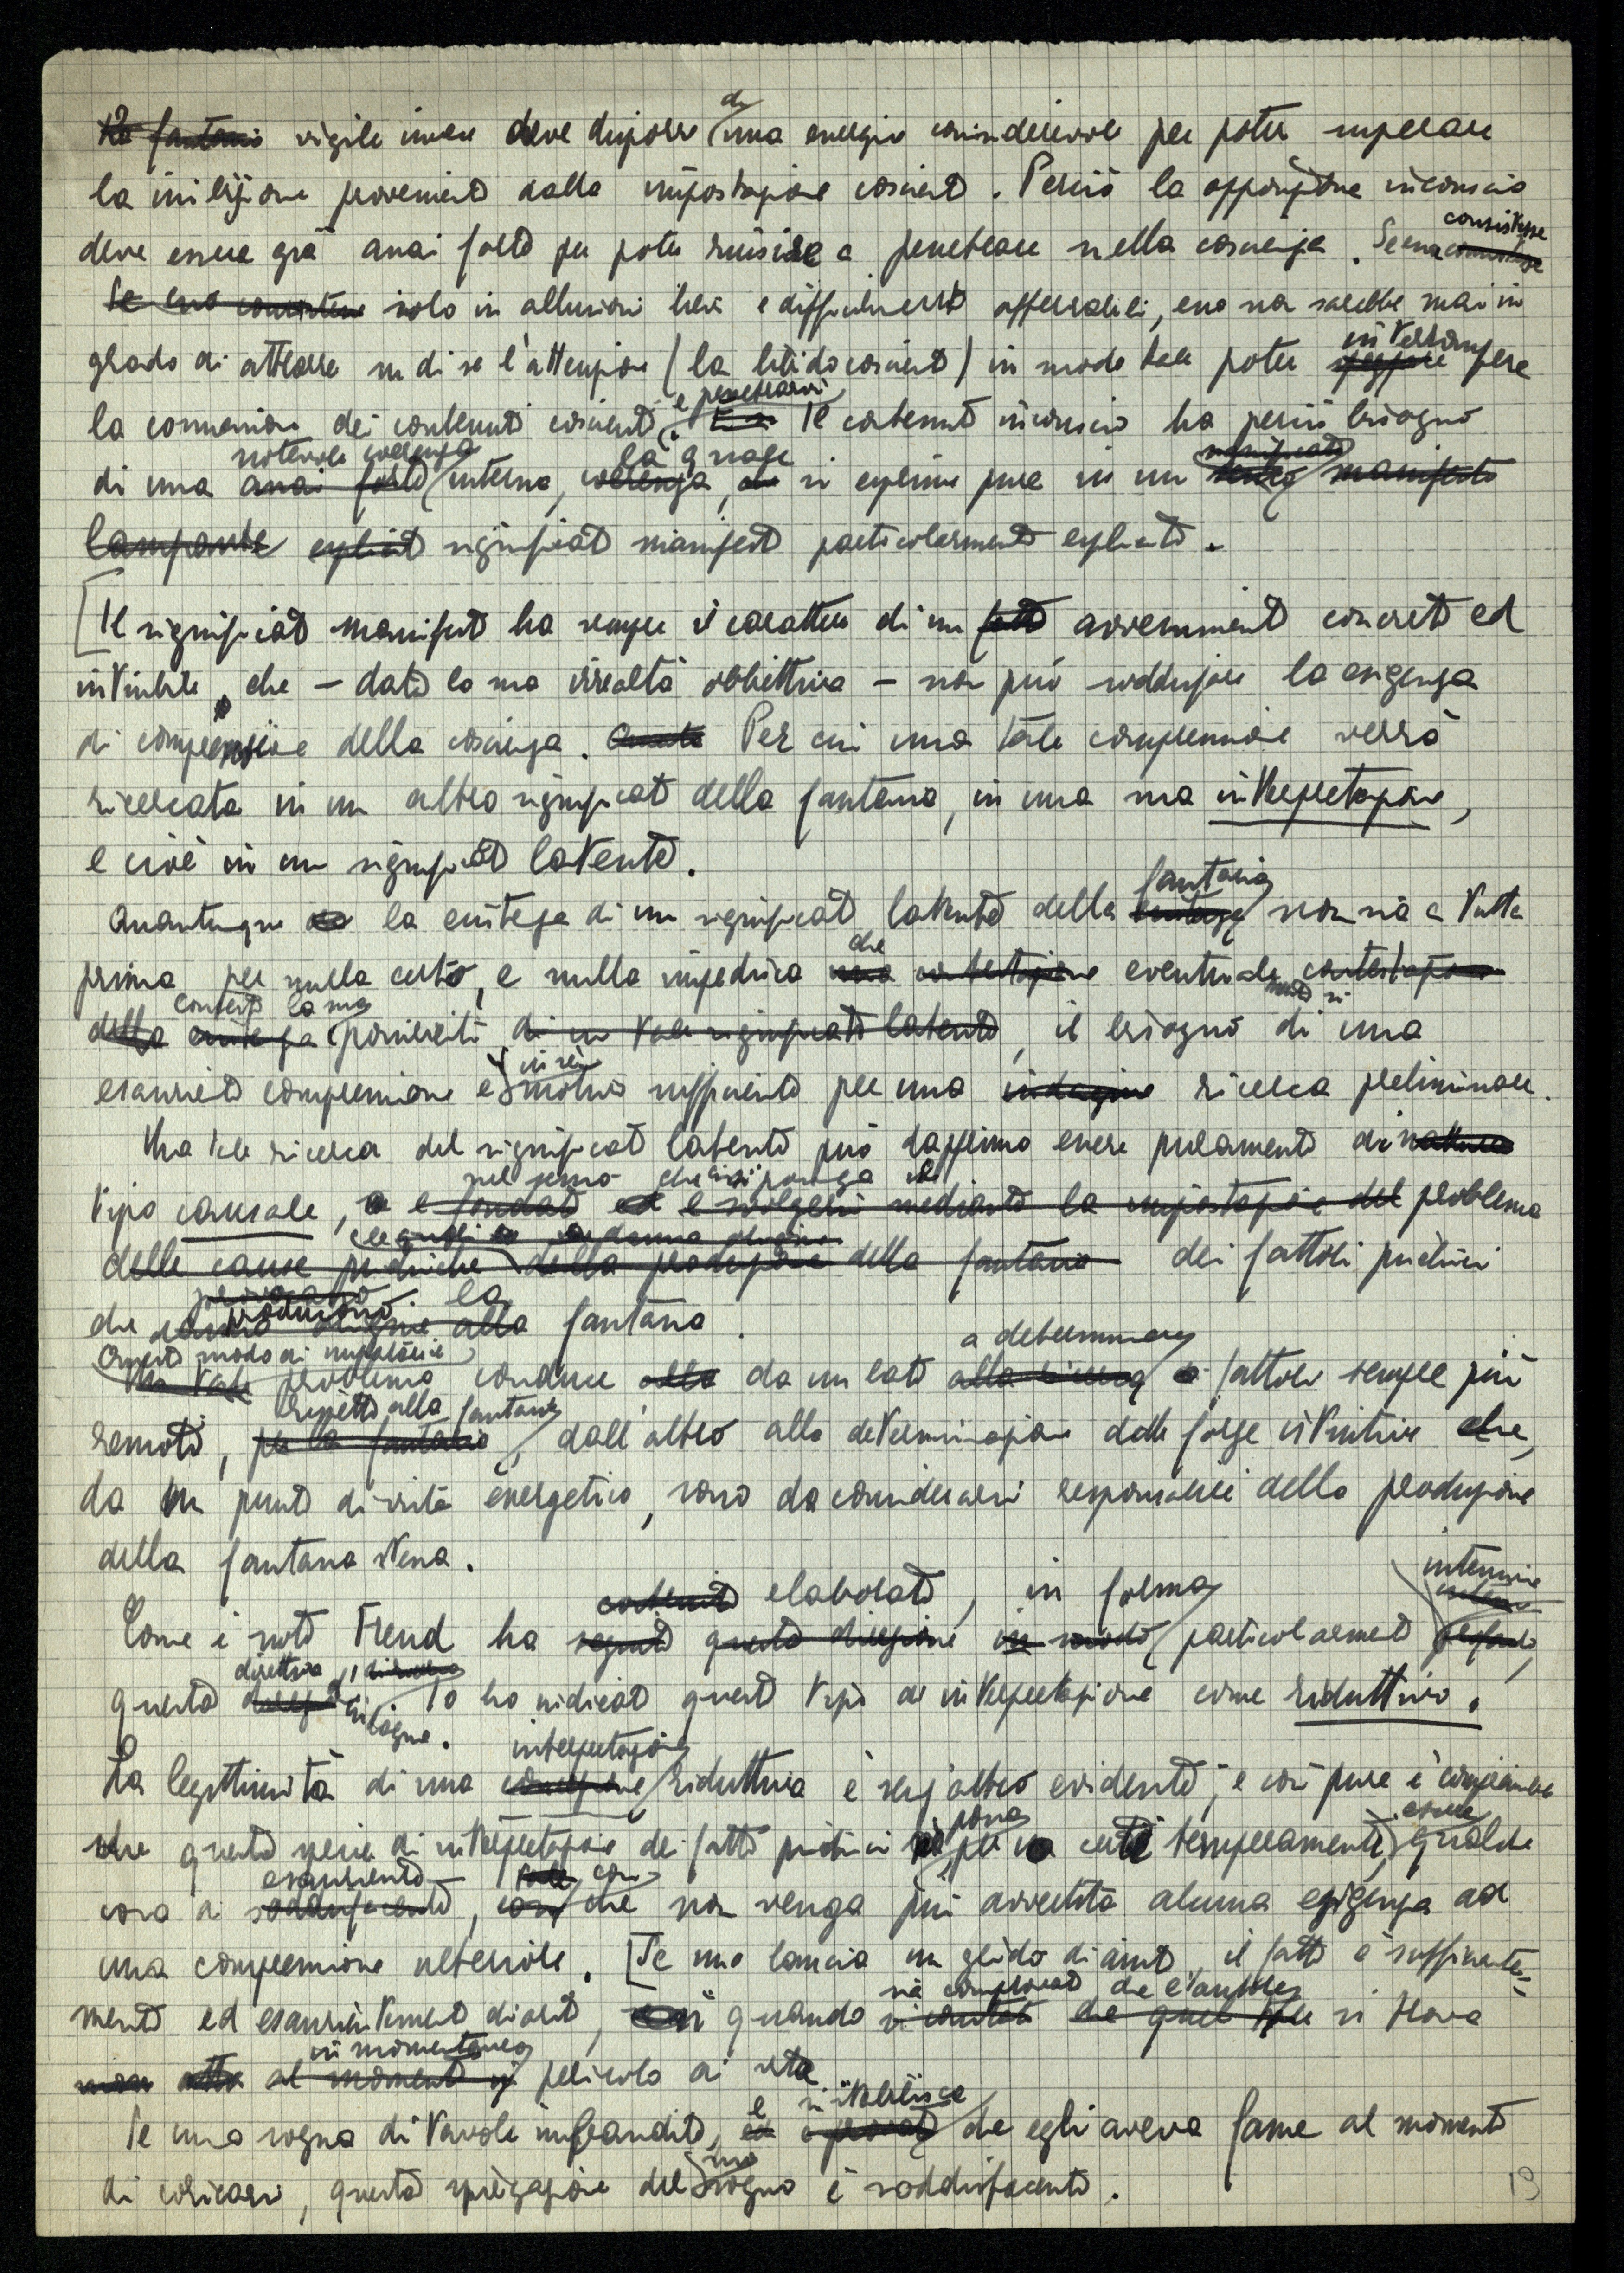 vigile invece deve disporre di una energia considerevole per poter superare
la inibizione proveniente dalla impostazione cosciente. Perciò la opposizione inconscia
deve essere già assai forte per poter riuscire a penetrare nella coscienza. Se essa consistesse
solo in allusioni lievi e difficilmente afferrabili, essa non sarebbe mai in
grado di attrarre su di se l'attenzione (la libido cosciente) in modo tale poter interrompere
la connessione dei contenuti coscienti e penetrarvi. Il contenuto inconscio ha perciò bisogno
di una notevole coerenza interna, la quale si esprime pure in un
significato manifesto particolarmente esplicito.
[Il significato manifesto ha sempre il carattere di un avvenimento concreto ed
intuibile, che – data la sua irrealtà obbiettiva – non può soddisfare la esigenza
di comprensione della coscienza. Per cui una tale comprensione verrà
ricercata in un altro significato della fantasia, in una sua interpretazione,
e cioè in un significato latente.
Quantunque la esistenza di un significato latente della fantasia non sia a tutta
prima per nulla certo, e nulla impedisca che eventualmente si
contesti la sua possibilità, il bisogno di una
esauriente comprensione è in sè motivo sufficiente per una ricerca preliminare.
Una tale ricerca del significato latente può dapprima essere puramente di
tipo causale, nel senso che si ponga il problema
dei fattori psichici
che producono la fantasia.
Questo modo di impostare il problema conduce da un lato a determinare fattori sempre più
remoti, rispetto alla fantasia, dall'altro alla determinazione delle forze istintive che,
da un punto di vista energetico, sono da considerarsi responsabili della produzione
della fantasia stessa.
Come è noto Freud ha elaborato, in forma particolarmente intensiva
questa direttiva di indagine. Io ho indicato questo tipo di interpretazione come riduttivo.
La legittimità di una interpretazione riduttiva è senz'altro evidente; e così pure è comprensibile
che questa specie di interpretazione dei fatti psichici possa per certi temperamenti essere qualche
cosa di esauriente – così che non venga più avvertita alcuna esigenza ad
una comprensione ulteriore. [Se uno lancia un grido di aiuto, il fatto è sufficiente-
mente ed esaurientemente chiarito, quando sia comprovato che l'autore si trova
in momentaneo pericolo di vita
Se uno sogna di tavole imbandite, e si stabilisce che egli aveva fame al momento
di coricarsi, questa spiegazione del suo sogno è soddisfacente.
19